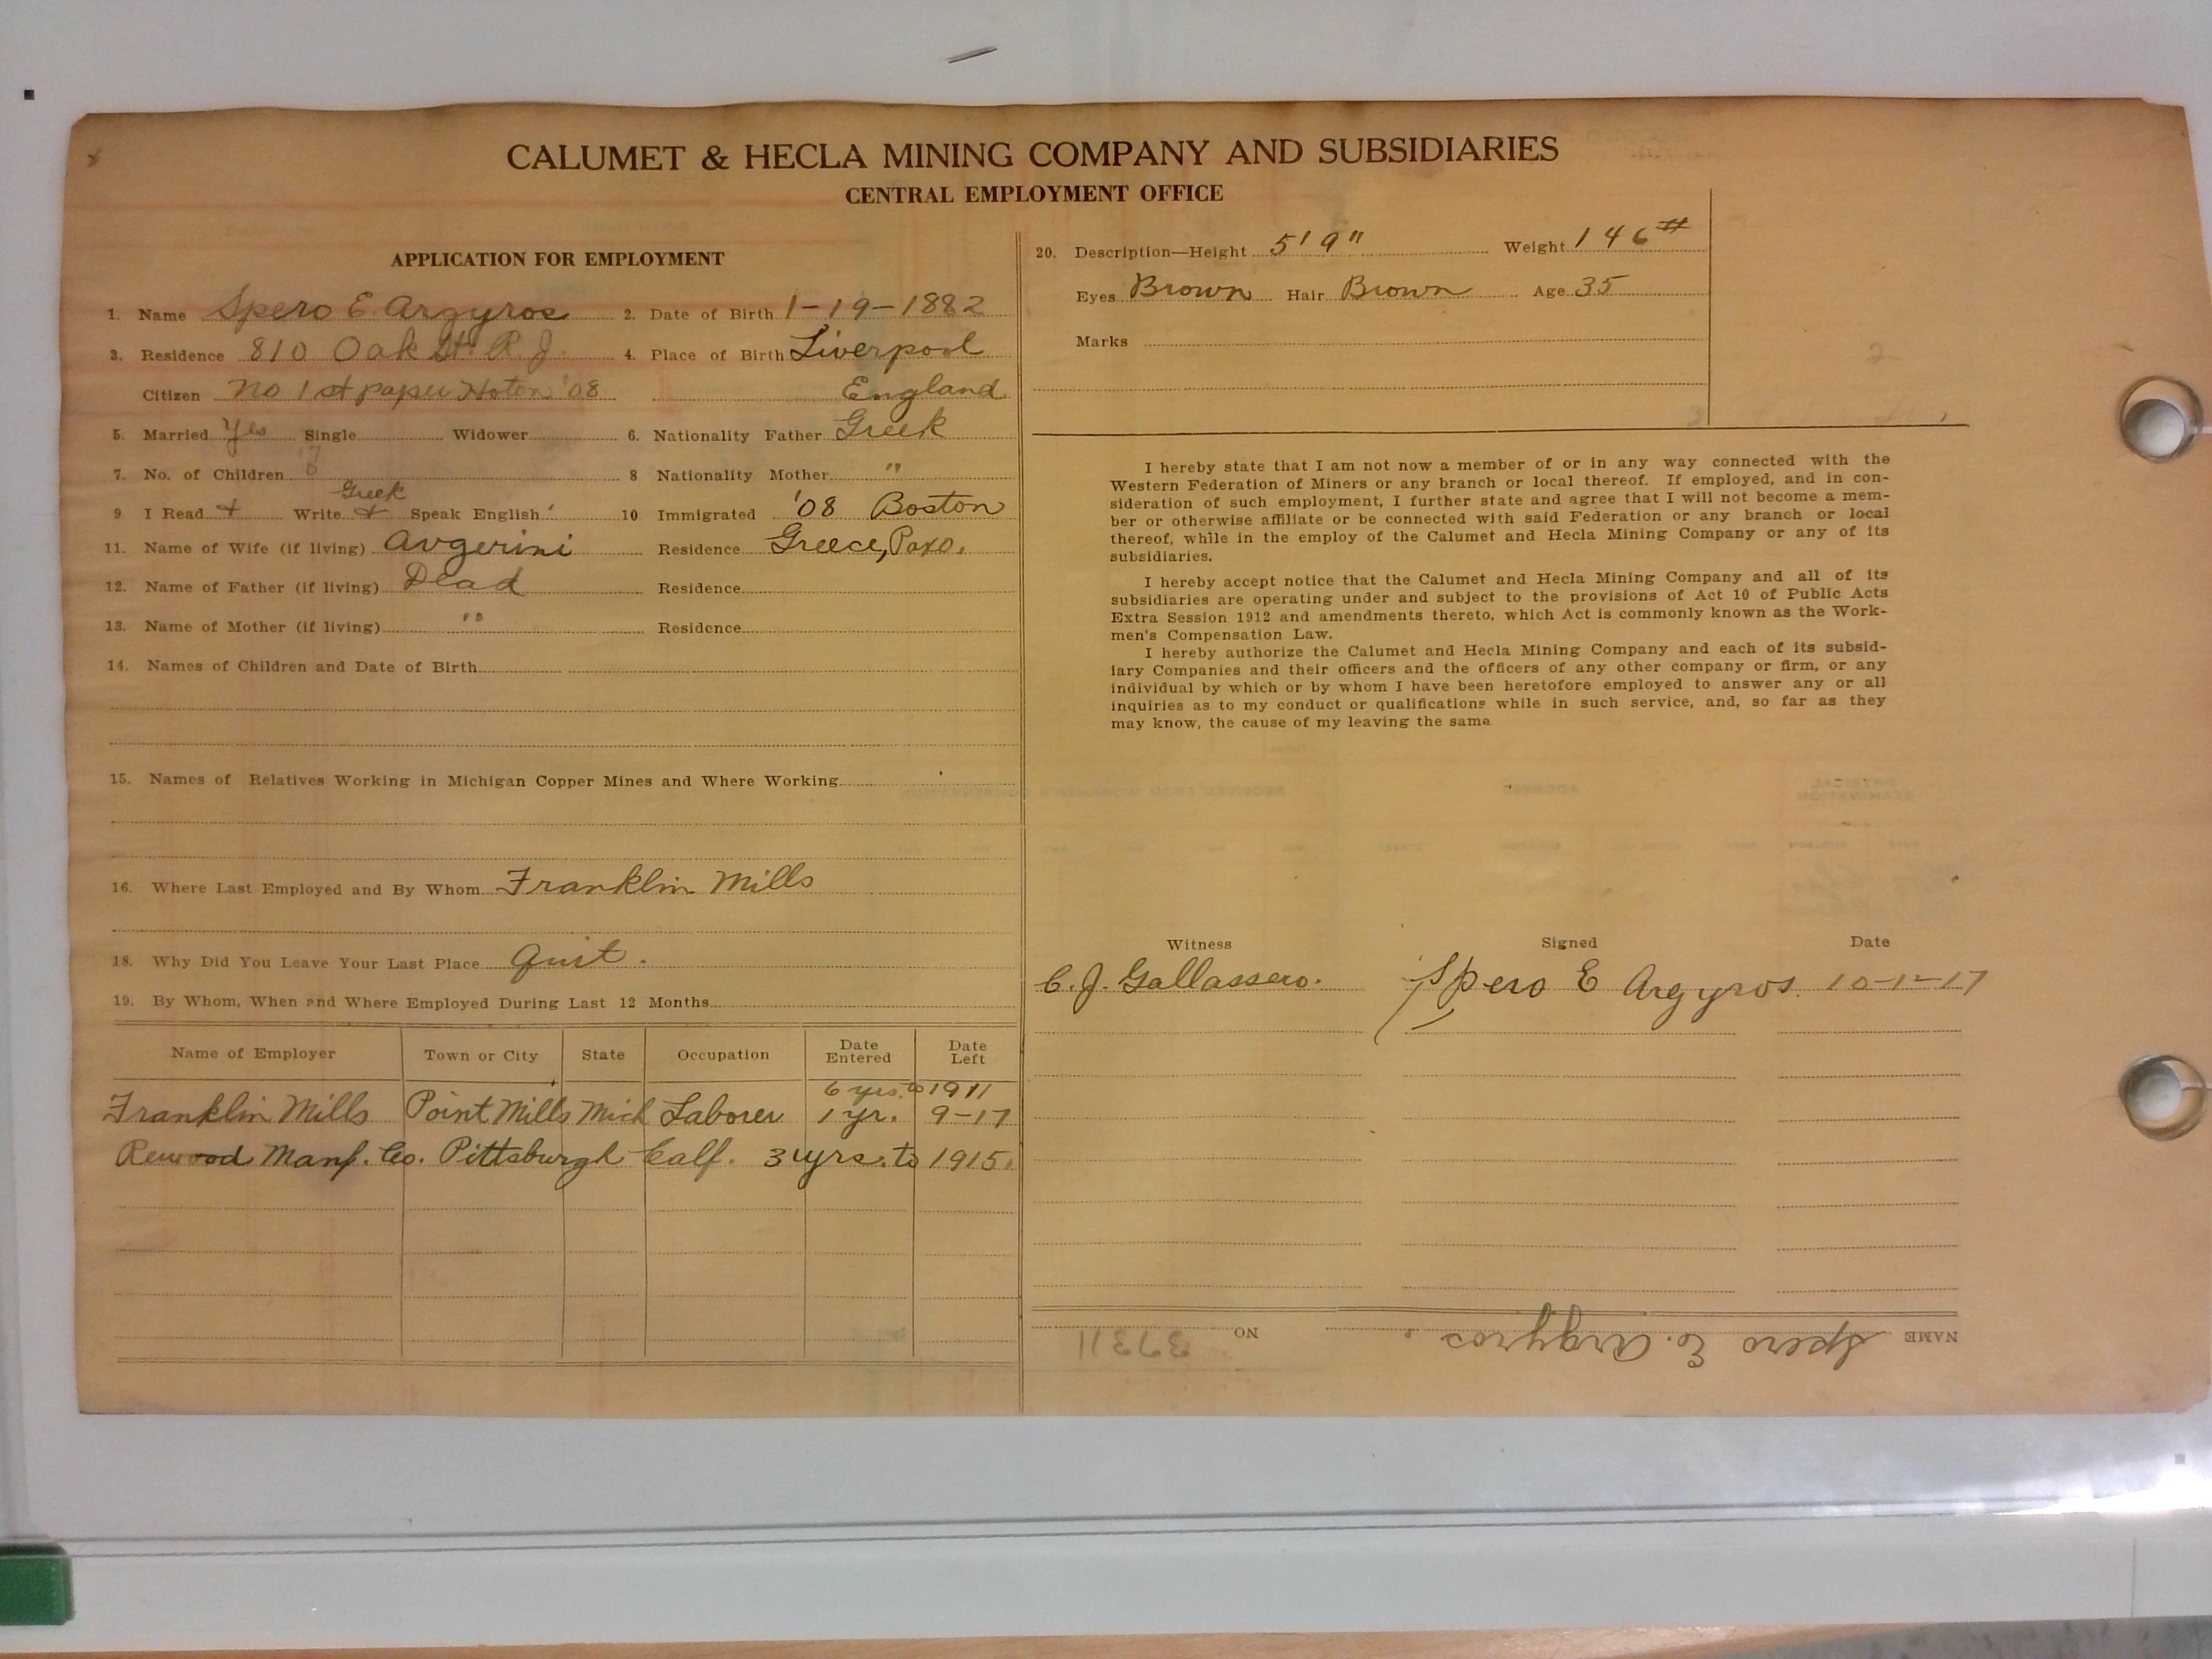 CALUMET & HECLA MINING COMPANY AND SUBSIDIARIES
CENTRAL EMPLOYMENT OFFICE
APPLICATION FOR EMPLOYMENT
1. Name Spero E. Argyros 2. Date of Birth 1-19-1882
3. Residence 810 Oak St. R. J. 4. Place of Birth Liverpool
Citizen no 1st paper Hoton '08 England
5. Married Yes Single Widower 6. Nationality Father Greek
7. No. of Children 8 Nationality Mother "
Greek
9 I Read + Write + Speak English 10 Immigrated '08 Boston
11. Name of Wife (if living) Avgerini Residence Greece, Paxo.
12. Name of Father (if living) Dead Residence
13. Name of Mother (if living) " Residence
14. Names of Children and Date of Birth
15. Names of Relatives Working in Michigan Copper Mines and Where Working
16. Where Last Employed and By Whom Franklin Mills
18. Why Did You Leave Your Last Place Quit.
19. By Whom, When and Where Employed During Last 12 Months
Name of Employer Town or City State Occupation Date Entered Date Left
6 yrs. to 1911
Franklin Mills Point Mills Mich Laborer 1 yr. 9-17
Manf. Co. Pittsburgh Calf. 3 yrs. to 1915.
20. Description—Height 5'9" Weight 146#
Eyes Brown Hair Brown Age 35
Marks
I hereby state that I am not now a member of or in any way connected with the
Western Federation of Miners or any branch or local thereof. If employed, and in con-
sideration of such employment, I further state and agree that I will not become a mem-
ber or otherwise affiliate or be connected with said Federation or any branch or local
thereof, while in the employ of the Calumet and Hecla Mining Company or any of its
subsidiaries.
I hereby accept notice that the Calumet and Hecla Mining Company and all of its
subsidiaries are operating under and subject to the provisions of Act 10 of Public Acts
Extra Session 1912 and amendments thereto, which Act is commonly known as the Work-
men's Compensation Law.
I hereby authorize the Calumet and Hecla Mining Company and each of its subsid-
iary Companies and their officers and the officers of any other company or firm, or any
individual by which or by whom I have been heretofore employed to answer any or all
inquiries as to my conduct or qualifications while in such service, and, so far as they
may know, the cause of my leaving the same
Witness Signed Date
C. J. Gallassero. Spero E Argyros. 10-1-17
NAME Spero E. Argyros. NO 37311